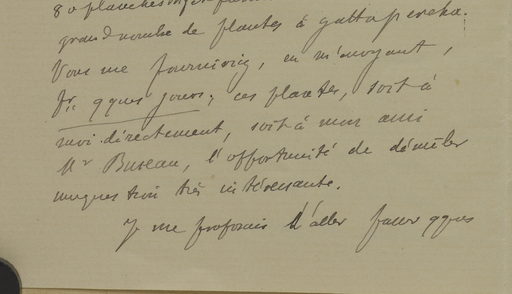 80 planches
grand nombre de plantes à gutta percha.
Vous me fourniriez, en m'envoyant,
qques jours, ces plantes, soit à
moi directement, soit à mon ami
Mr Bureau, l'opportunité de démêler
une question très intéressante.
Je me proposais d'aller passer qques